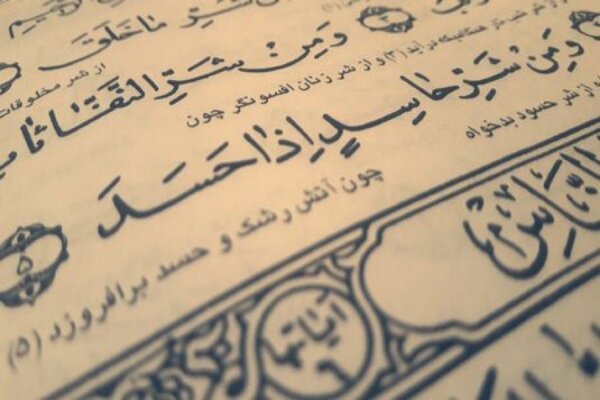 شَرِّ مَا خَلَقَ
از شر مخلوقات
وَمِنْ شَرِّ النَّفَّاثَاتِ
(۳) و از شر زنان افسونگر چون
وَمِنْ شَرِّ حَاسِدٍ اِذَا حَسَدَ
از شر حسود بدخواه
چون آتش رشک و حسد برافروزد (۵)
۵
النَّاسِ
آیاتها
۶